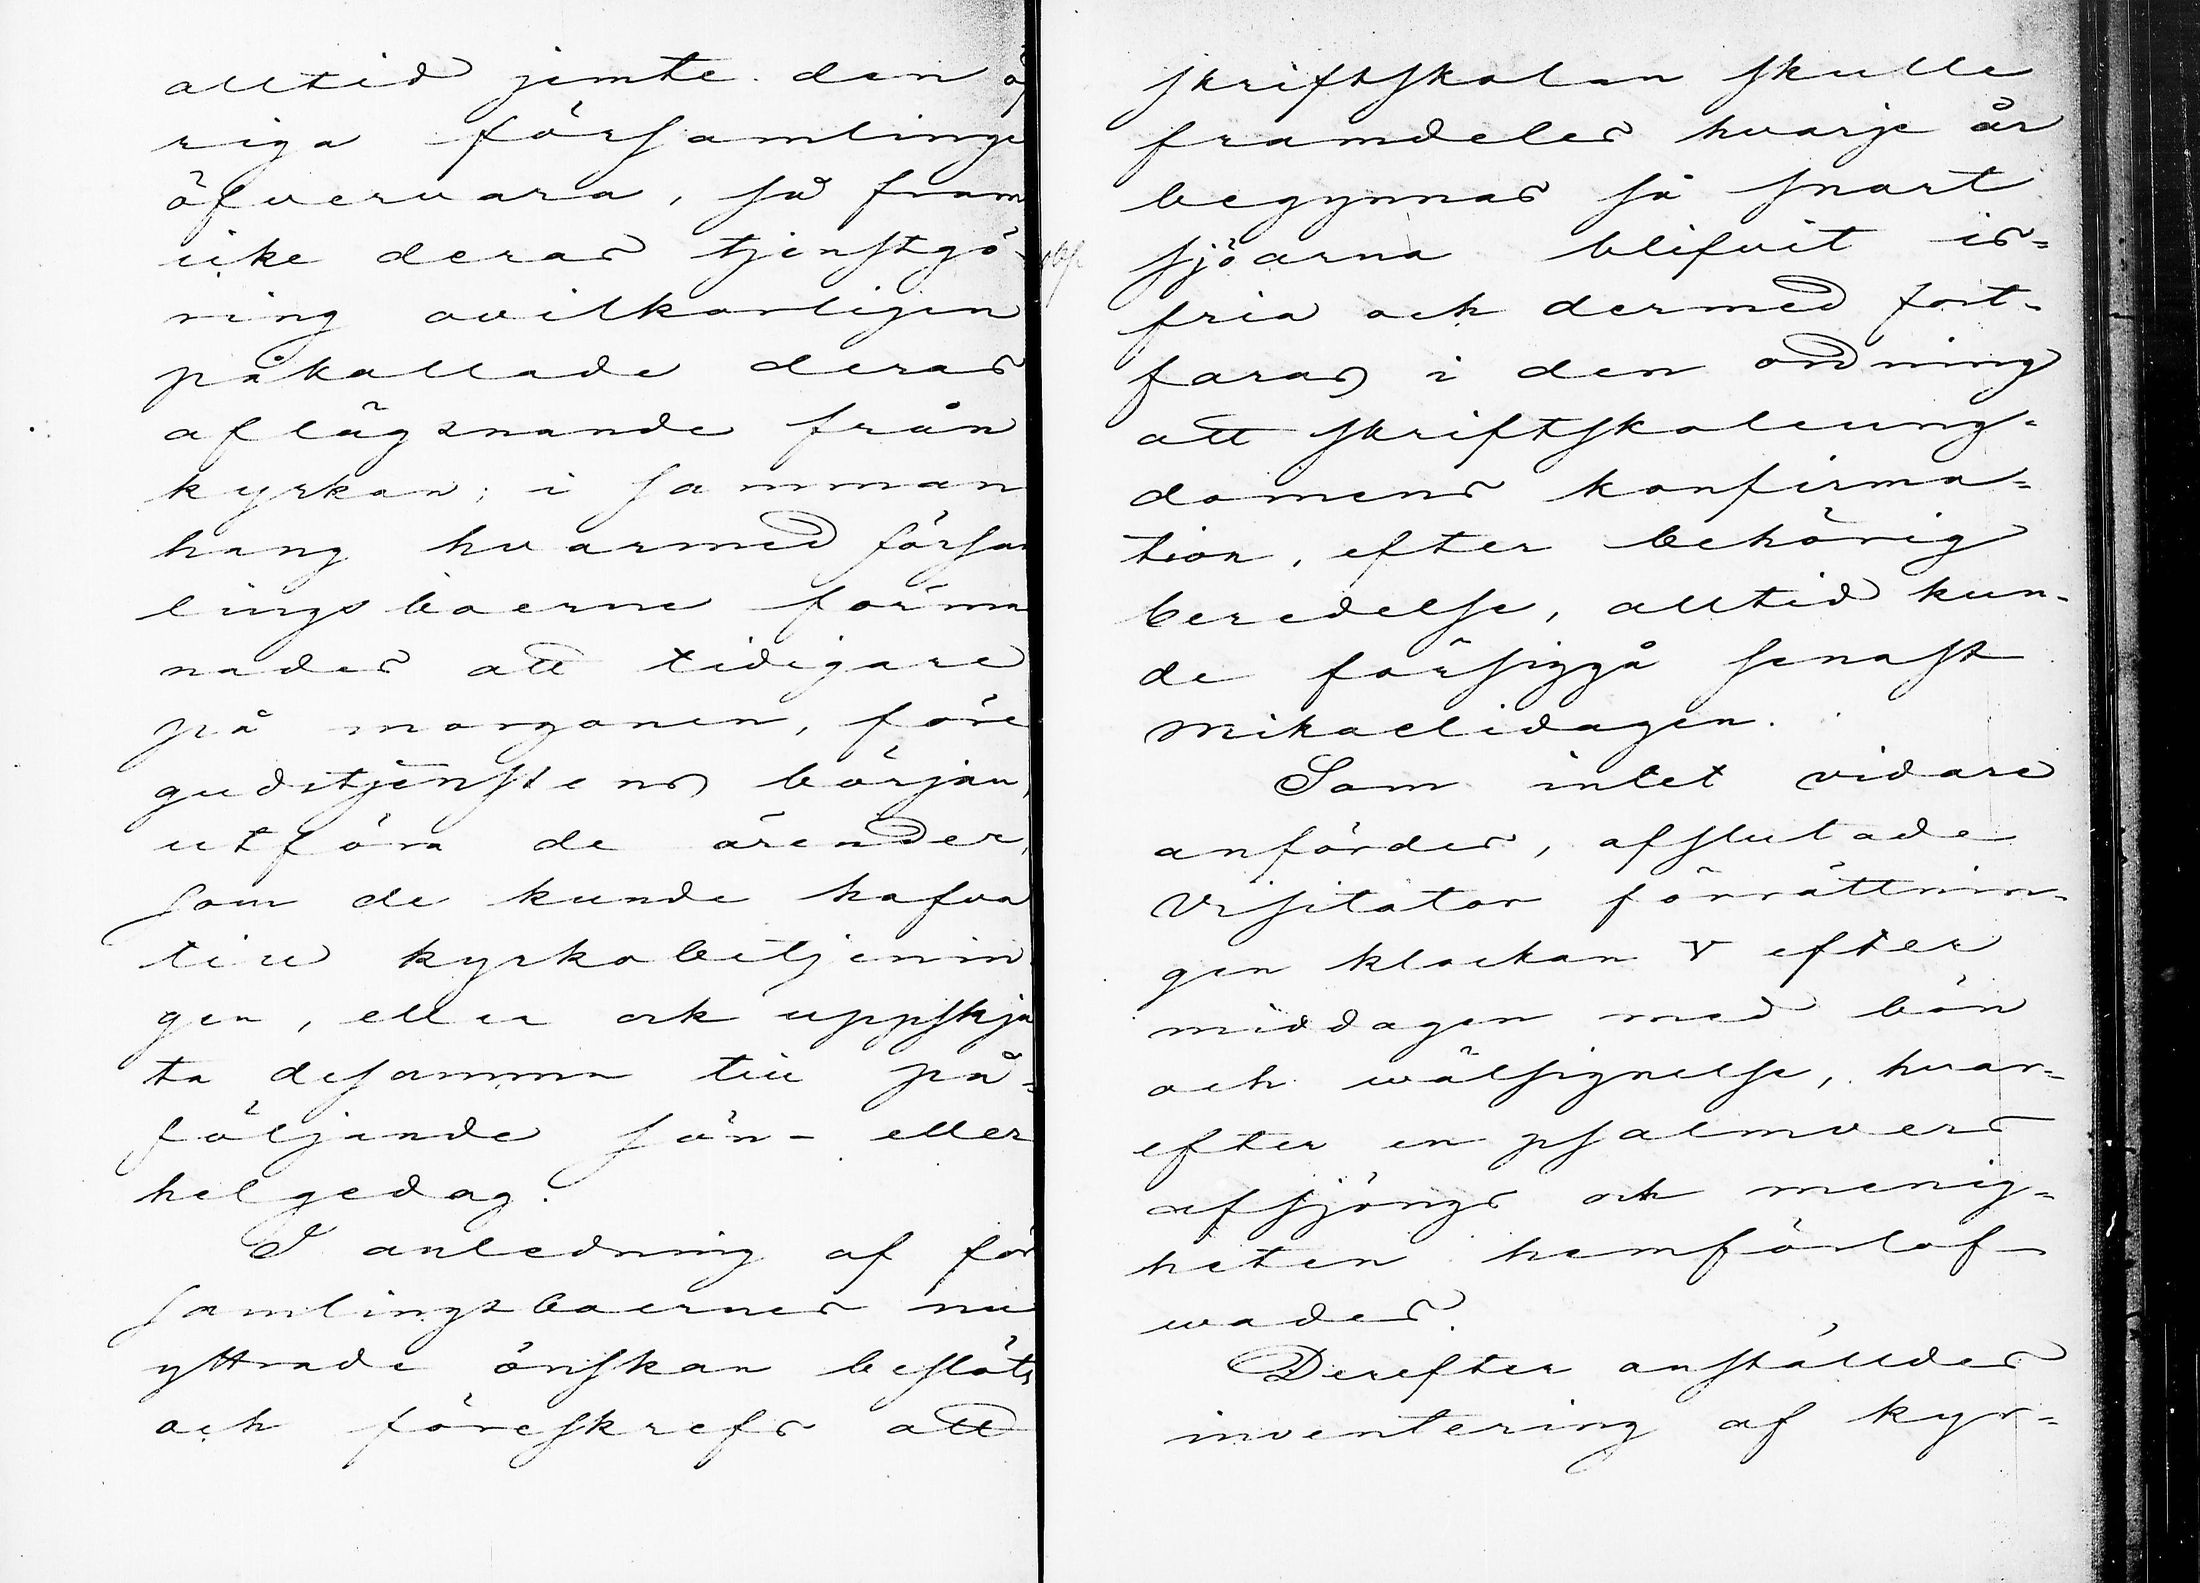 alltid jemte den öf
riga församlinge
öfvervara, så fram
icke deras tjenstgö-
ring ovilkorligen
påkallade deras
aflägsnande från
kyrkan; i samman
hang hvarmed försam
lingsboerne förma
nades att tidigare
på morgonen, före
gudstjenstens början,
utföra de ärender,
som de kunde hafva
till kyrkobetjenin
gen, eller ock uppskju
ta desamma till på=
följande sön- eller
helgedag.
I anledning af för
samlingsboernes nu
yttrade önskan beslöts
och föreskrefs att
skriftskolan skulle
framdeles hvarje år
begynnas så snart
sjöarna blifvit is=
fria och dermed fort-
faras i den ordning
att skriftskoleung-
domens konfirma=
tion, efter behörig
beredelse, alltid kun-
de försiggå senast
Mikaelidagen.
Som intet vidare
anfördes, afslutade
Visitator förrättnin-
gen klockan V efter
middagen med bön
och wälsignelse, hvar=
efter en psalmvers
afsjöngs och menig=
heten hemförlof-
wades.
Derefter anställdes
inventering af kyr=